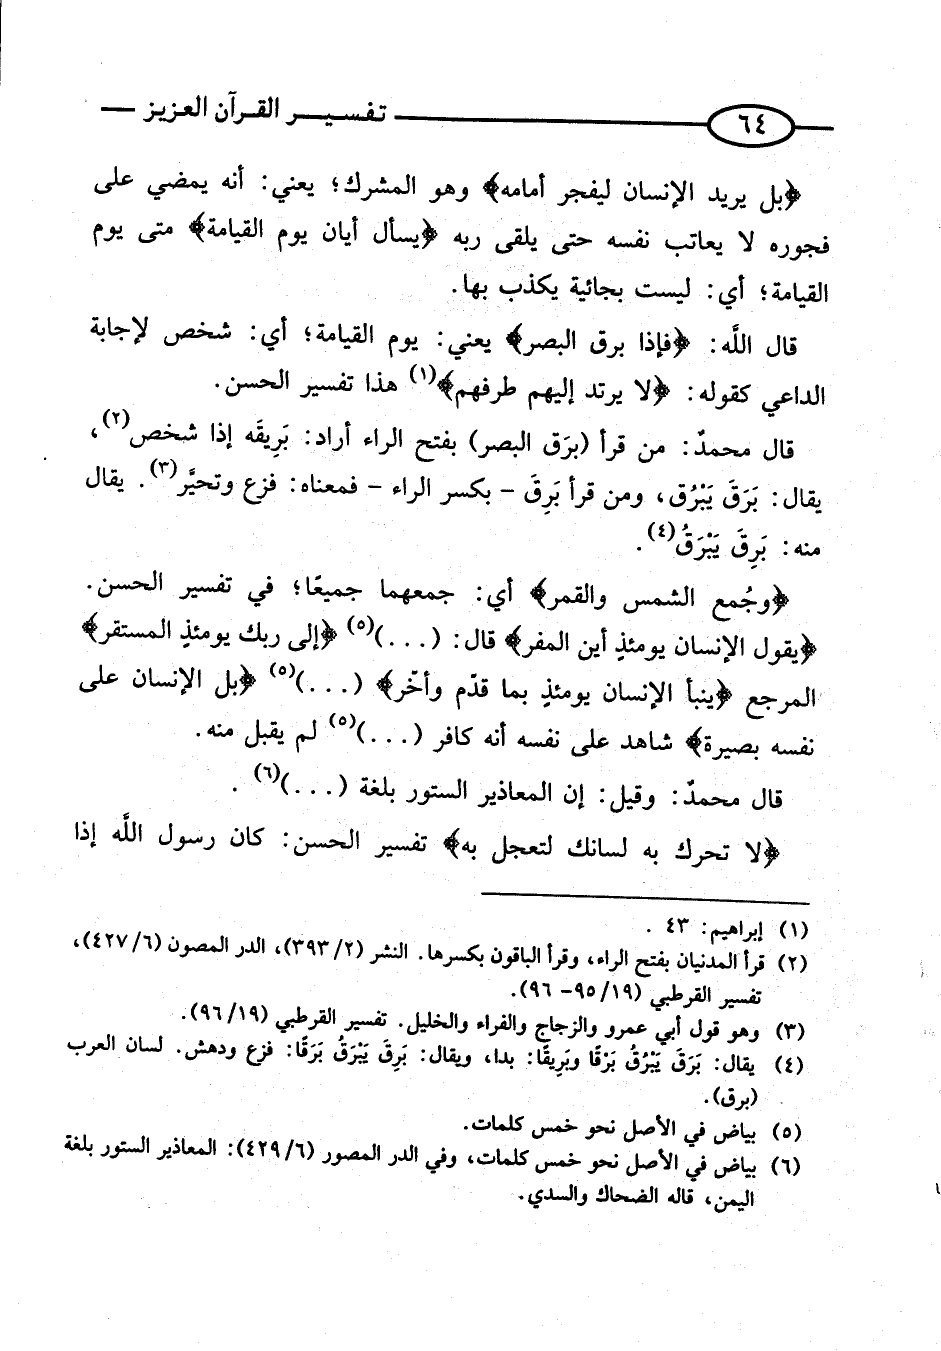 ٦٤ تفسير القرآن العزيز
﴿بل يريد الإنسان ليفجر أمامه﴾ وهو المشرك؛ يعني: أنه يمضي على
فجوره لا يعاتب نفسه حتى يلقى ربه ﴿يسأل أيان يوم القيامة﴾ متى يوم
القيامة؛ أي: ليست بجائية يكذب بها.
قال اللَّه: ﴿فإذا برق البصر﴾ يعني: يوم القيامة؛ أي: شخص لإجابة
الداعي كقوله: ﴿لا يرتد إليهم طرفهم﴾(١) هذا تفسير الحسن.
قال محمدٌ: من قرأ (برَق البصر) بفتح الراء أراد: بَرِيقَه إذا شخص(٢)،
يقال: بَرَقَ يَبْرُق، ومن قرأ بَرِقَ - بكسر الراء - فمعناه: فزع وتحيَّر(٣). يقال
منه: بَرِقَ يَبْرَقُ(٤).
﴿وجُمع الشمس والقمر﴾ أي: جمعهما جميعًا؛ في تفسير الحسن.
﴿يقول الإنسان يومئذٍ أين المفر﴾ قال: (...)(٥) ﴿إلى ربك يومئذٍ المستقر﴾
المرجع ﴿ينبأ الإنسان يومئذٍ بما قدّم وأخّر﴾ (...)(٥) ﴿بل الإنسان على
نفسه بصيرة﴾ شاهد على نفسه أنه كافر (...)(٥) لم يقبل منه.
قال محمدٌ: وقيل: إن المعاذير الستور بلغة (...)(٦).
﴿لا تحرك به لسانك لتعجل به﴾ تفسير الحسن: كان رسول اللَّه إذا
(١) إبراهيم: ٤٣ .
(٢) قرأ المدنيان بفتح الراء، وقرأ الباقون بكسرها. النشر (٣٩٣/٢)، الدر المصون (٤٢٧/٦)،
تفسير القرطبي (٩٥/١٩- ٩٦).
(٣) وهو قول أبي عمرو والزجاج والفراء والخليل. تفسير القرطبي (٩٦/١٩).
(٤) يقال: بَرَقَ يَبْرُقُ بَرْقًا وبَرِيقًا: بدا، ويقال: بَرِقَ يَبْرَقُ بَرَقًا: فزع ودهش. لسان العرب
(برق).
(٥) بياض في الأصل نحو خمس كلمات.
(٦) بياض في الأصل نحو خمس كلمات، وفي الدر المصور (٤٢٩/٦): المعاذير الستور بلغة
اليمن، قاله الضحاك والسدي.